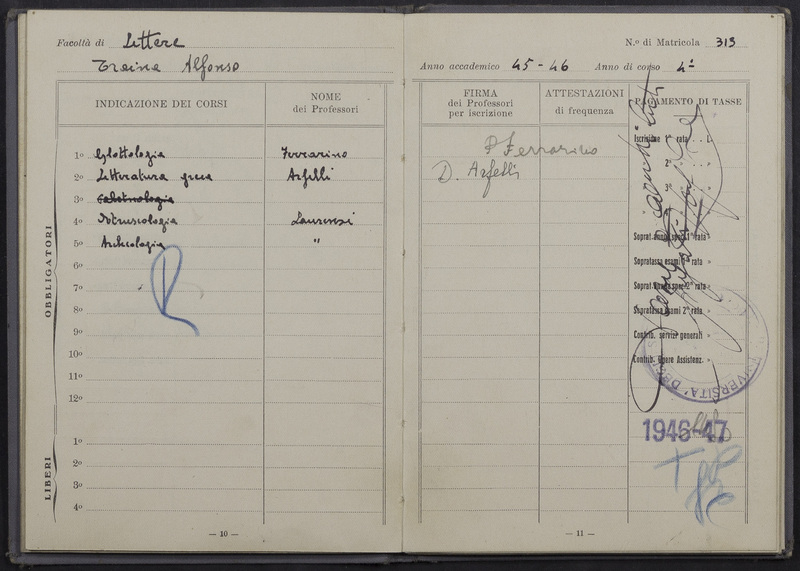 Facoltà di Lettere
Traina Alfonso
INDICAZIONE DEI CORSI
NOME
dei Professori
OBBLIGATORI
1º Glottologia Ferrarino
2º Letteratura greca Arfelli
3º
4º Etruscologia Laurenzi
5º Archeologia "
6º
7º
8º
9º
10º
11º
12º
LIBERI
1º
2º
3º
4º
— 10 —
N.º di Matricola 313
Anno accademico 45-46 Anno di corso 4º
FIRMA
dei Professori
per iscrizione
ATTESTAZIONI
di frequenza
PAGAMENTO DI TASSE
P. Ferrarino
D. Arfelli
Iscrizione 1ª rata L.
2ª "
3ª "
Soprat. 1ª rata "
Sopratassa esami rata
Soprat. 2ª rata "
Sopratassa esami 2ª rata "
Contrib. servizi generali "
Contrib. Opere Assistenz. "
1946-47
— 11 —